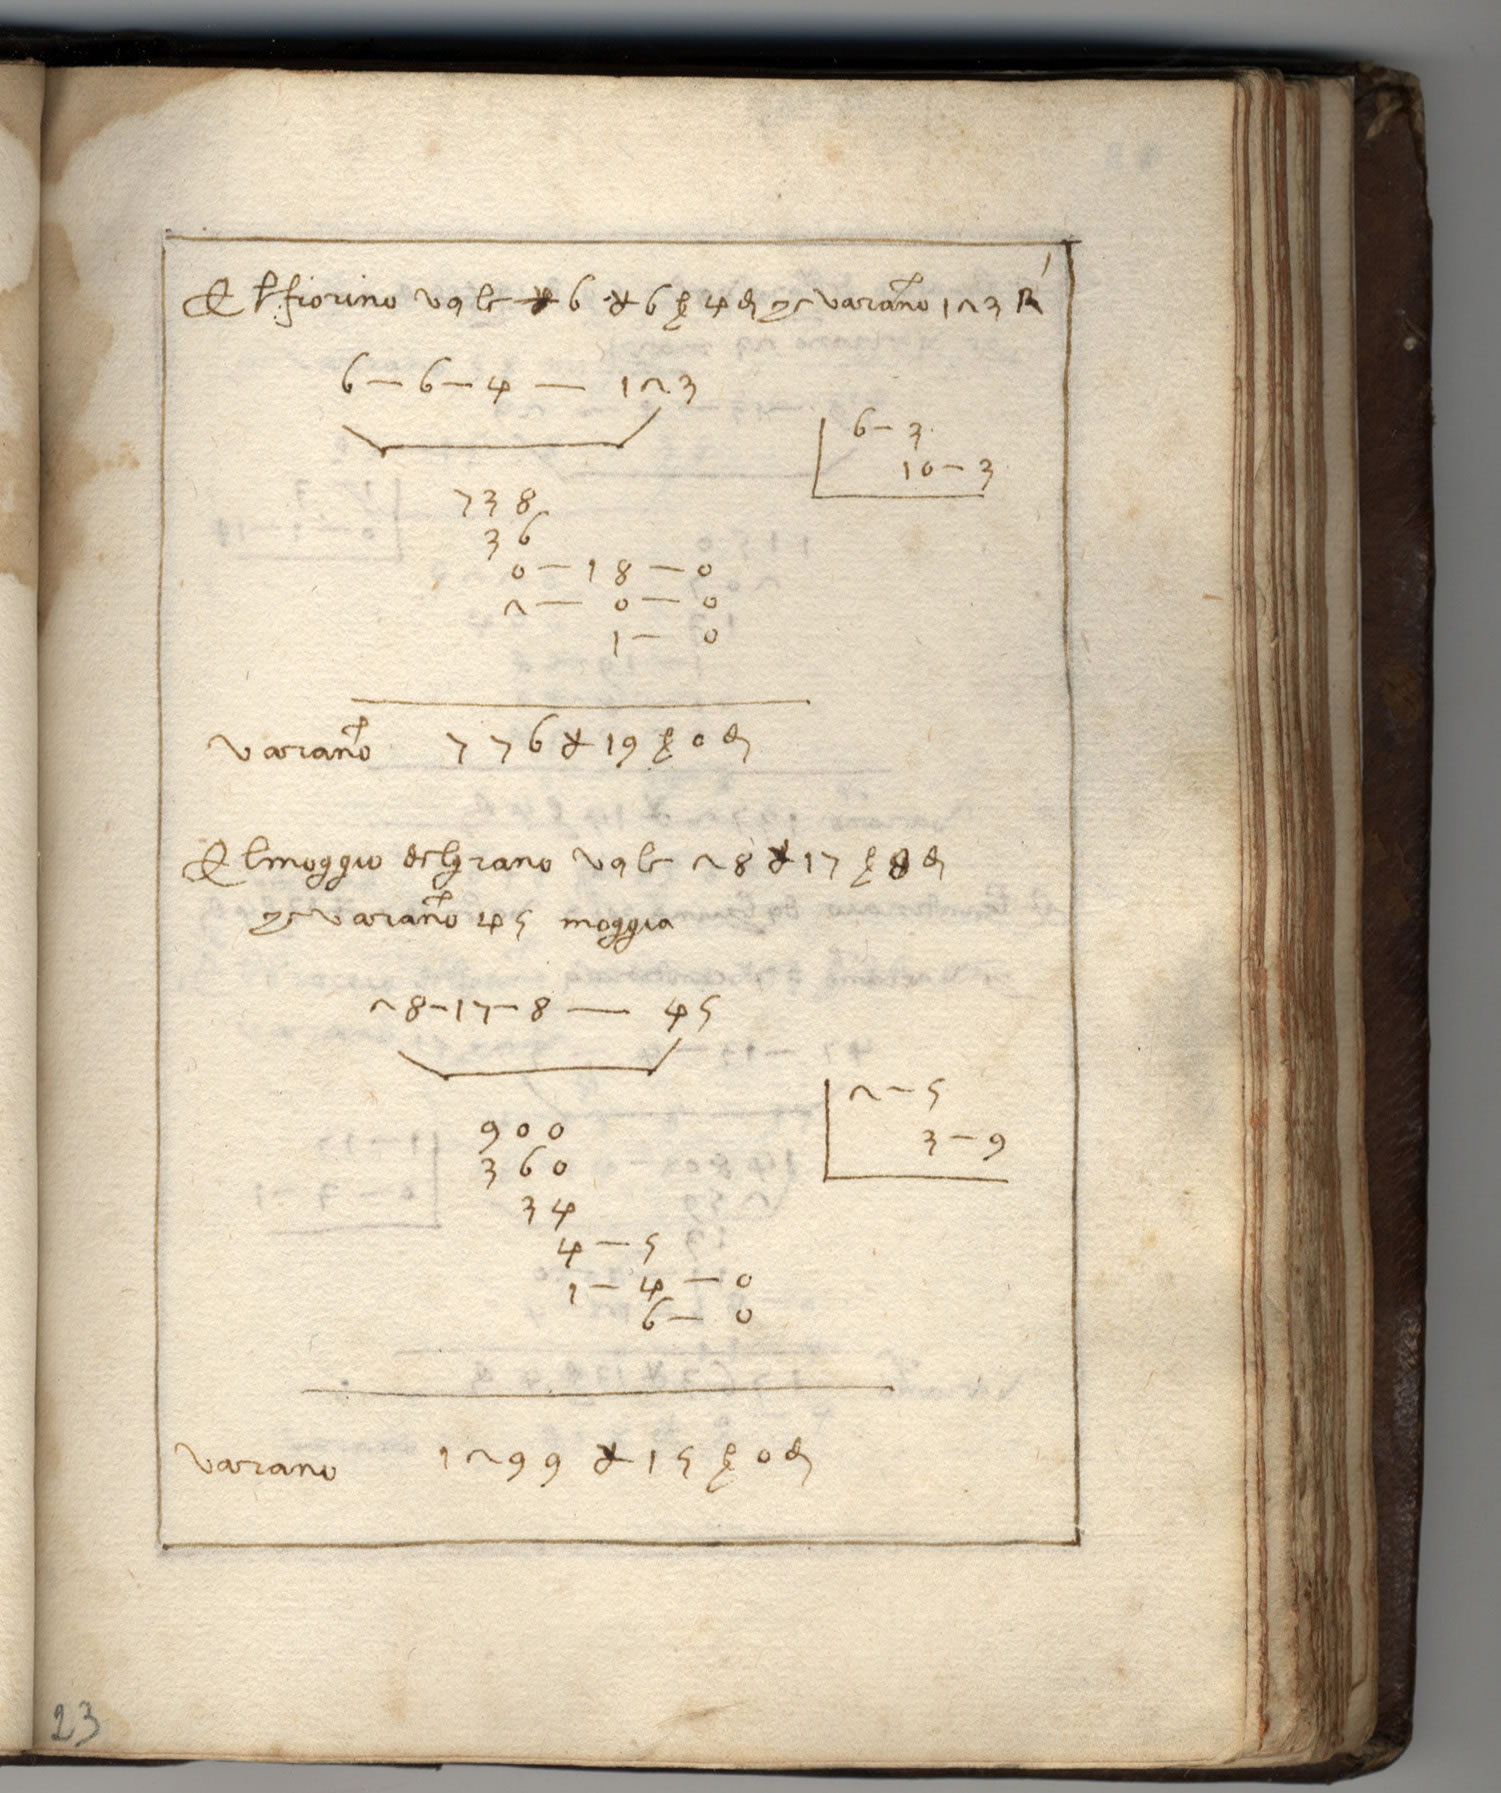 El fiorino vale ₰ 6 ₰ 6 ß 4 ₰ che varrano 123
6 — 6 — 4 — 123
6 — 3
10 — 3
738
36
0 — 18 — 0
2 — 0 — 0
1 — 0
varrano 776 ₰ 19 ß 0 ₰
El moggio del grano vale 28 ₰ 17 ß 8 ₰
che varrano 45 moggia
28 — 17 — 8 — 45
2 — 5
3 — 9
900
360
34
4 — 5
1 — 4 — 0
6 — 0
varano 1299 ₰ 15 ß 0 ₰
23